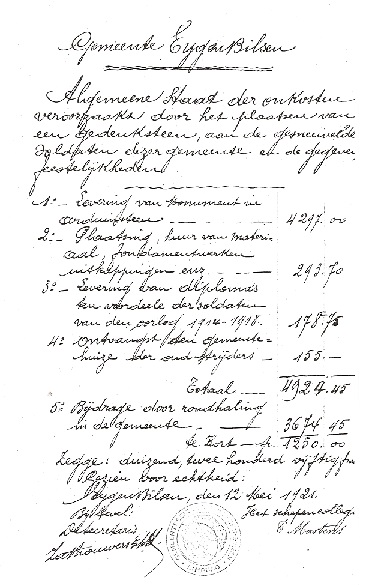 Gemeente EygenBilsen
Algemeene Staat der onkosten
veroorzaakt door het plaatsen van
een gedenksteen, aan de gesneuvelde
soldaten dezer gemeente en de gegeven
feestelijkheden.
1º- Levering van monument in
arduinsteen — 4297.00
2º- Plaatsing, huur van materi-
aal, fondamentwerken
uitkappingen enz. — 293.70
3º- Levering van diplomas
ten voordeele der soldaten
van den oorlog 1914-1918. — 178.75
4º Ontvangst ten gemeente-
huize der oud strijders — 155.—
Totaal — 4924.45
5º Bijdrage door rondhaling
in de gemeente — 3674 45
te kort — fr. 1250.00
Zegge: duizend, twee honderd vijftig fr
Gezien voor echtheid:
EygenBilsen, den 12 Mei 1921.
Bij bevel: Het schepencollege
De Secretaris C Martens